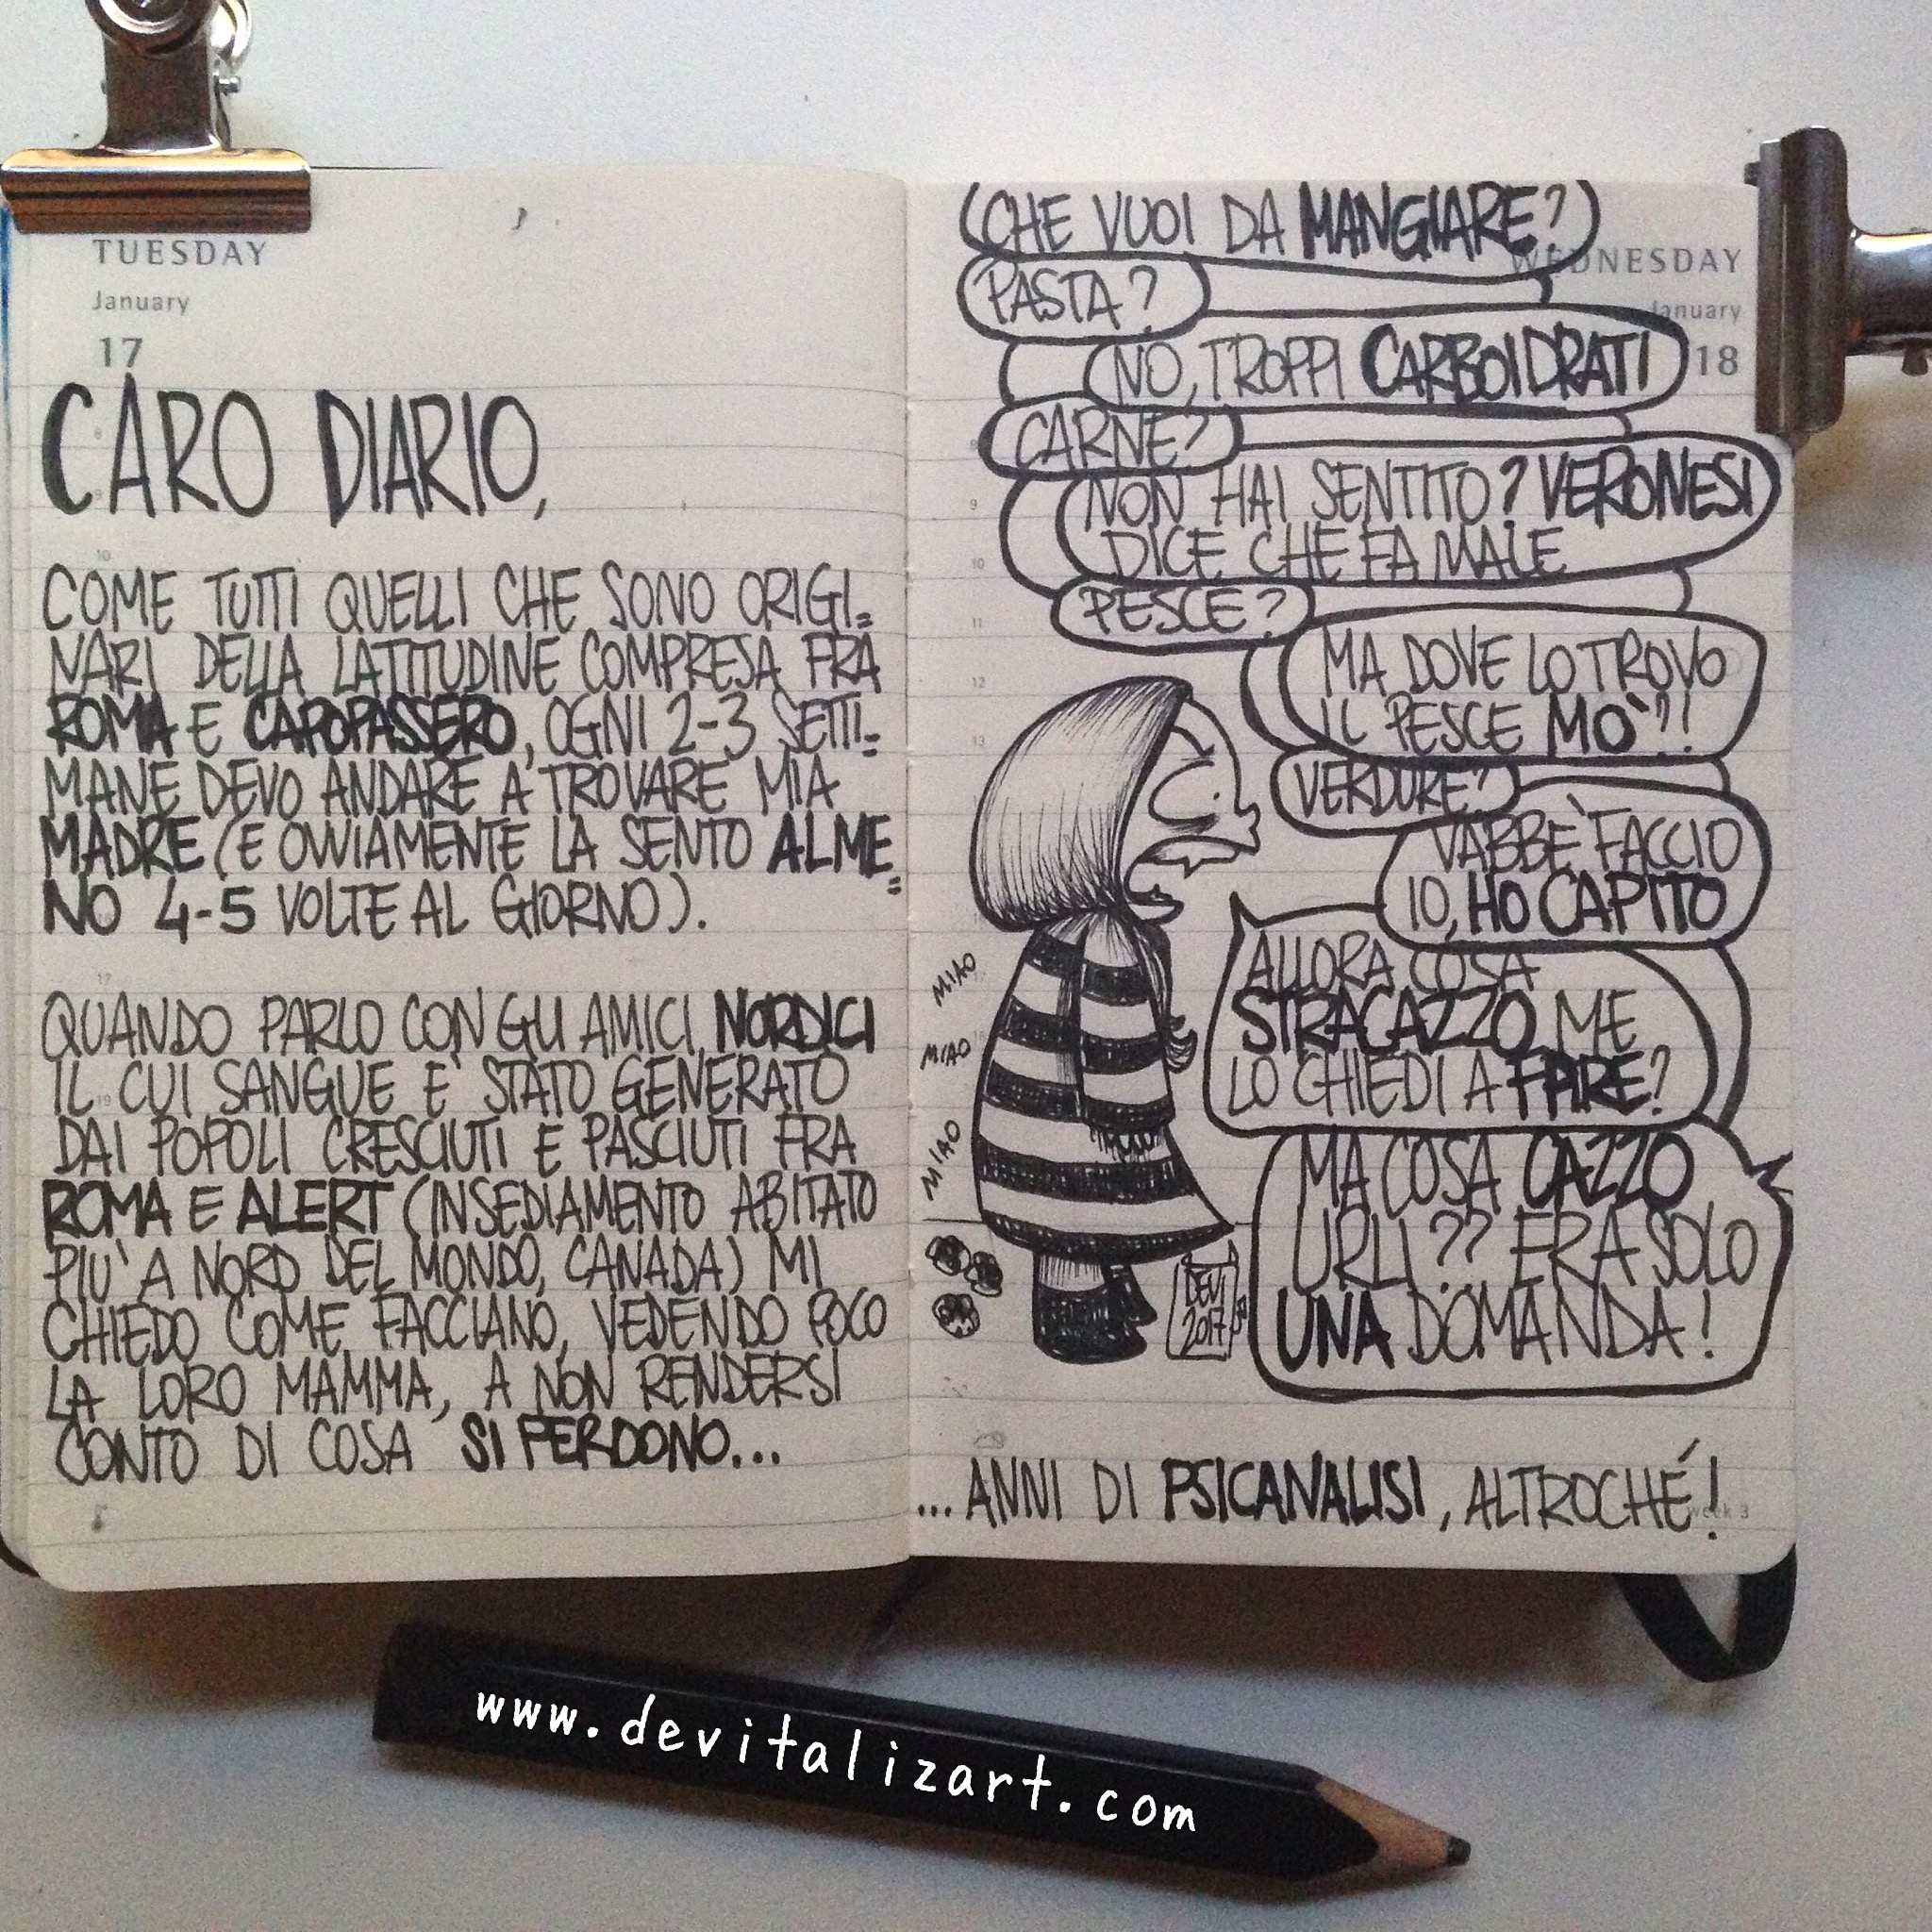 TUESDAY
January
17
CARO DIARIO,
COME TUTTI QUELLI CHE SONO ORIGI=
NARI DELLA LATITUDINE COMPRESA FRA
ROMA E CAPOPASSERO, OGNI 2-3 SETTI=
MANE DEVO ANDARE A TROVARE MIA
MADRE (E OVVIAMENTE LA SENTO ALME=
NO 4-5 VOLTE AL GIORNO).
QUANDO PARLO CON GLI AMICI NORDICI
IL CUI SANGUE E' STATO GENERATO
DAI POPOLI CRESCIUTI E PASCIUTI FRA
ROMA E ALERT (INSEDIAMENTO ABITATO
PIU' A NORD DEL MONDO, CANADA) MI
CHIEDO COME FACCIANO, VEDENDO POCO
LA LORO MAMMA, A NON RENDERSI
CONTO DI COSA SI PERDONO...
WEDNESDAY
January
18
CHE VUOI DA MANGIARE?
PASTA?
NO, TROPPI CARBOIDRATI
CARNE?
NON HAI SENTITO? VERONESI
DICE CHE FA MALE
PESCE?
MA DOVE LO TROVO
IL PESCE MO'?!
VERDURE?
VABBE' FACCIO
IO, HO CAPITO
ALLORA COSA
STRACAZZO ME
LO CHIEDI A FARE?
MA COSA CAZZO
URLI?? ERA SOLO
UNA DOMANDA!
MIAO
MIAO
MIAO
DEVI
2017
...ANNI DI PSICANALISI, ALTROCHÉ!
week 3
www.devitalizart.com